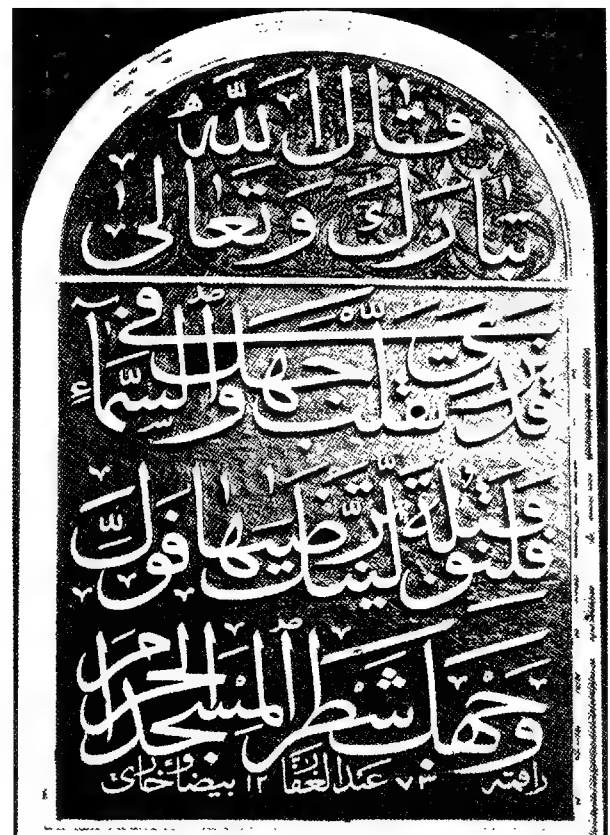 قال الله
تبارك وتعالى
قد نرى تقلب وجهك في السماء
فلنولينك قبلة ترضيها فول
وجهك شطر المسجد الحرام
راقمه عبدالغفار بيضاوخاری